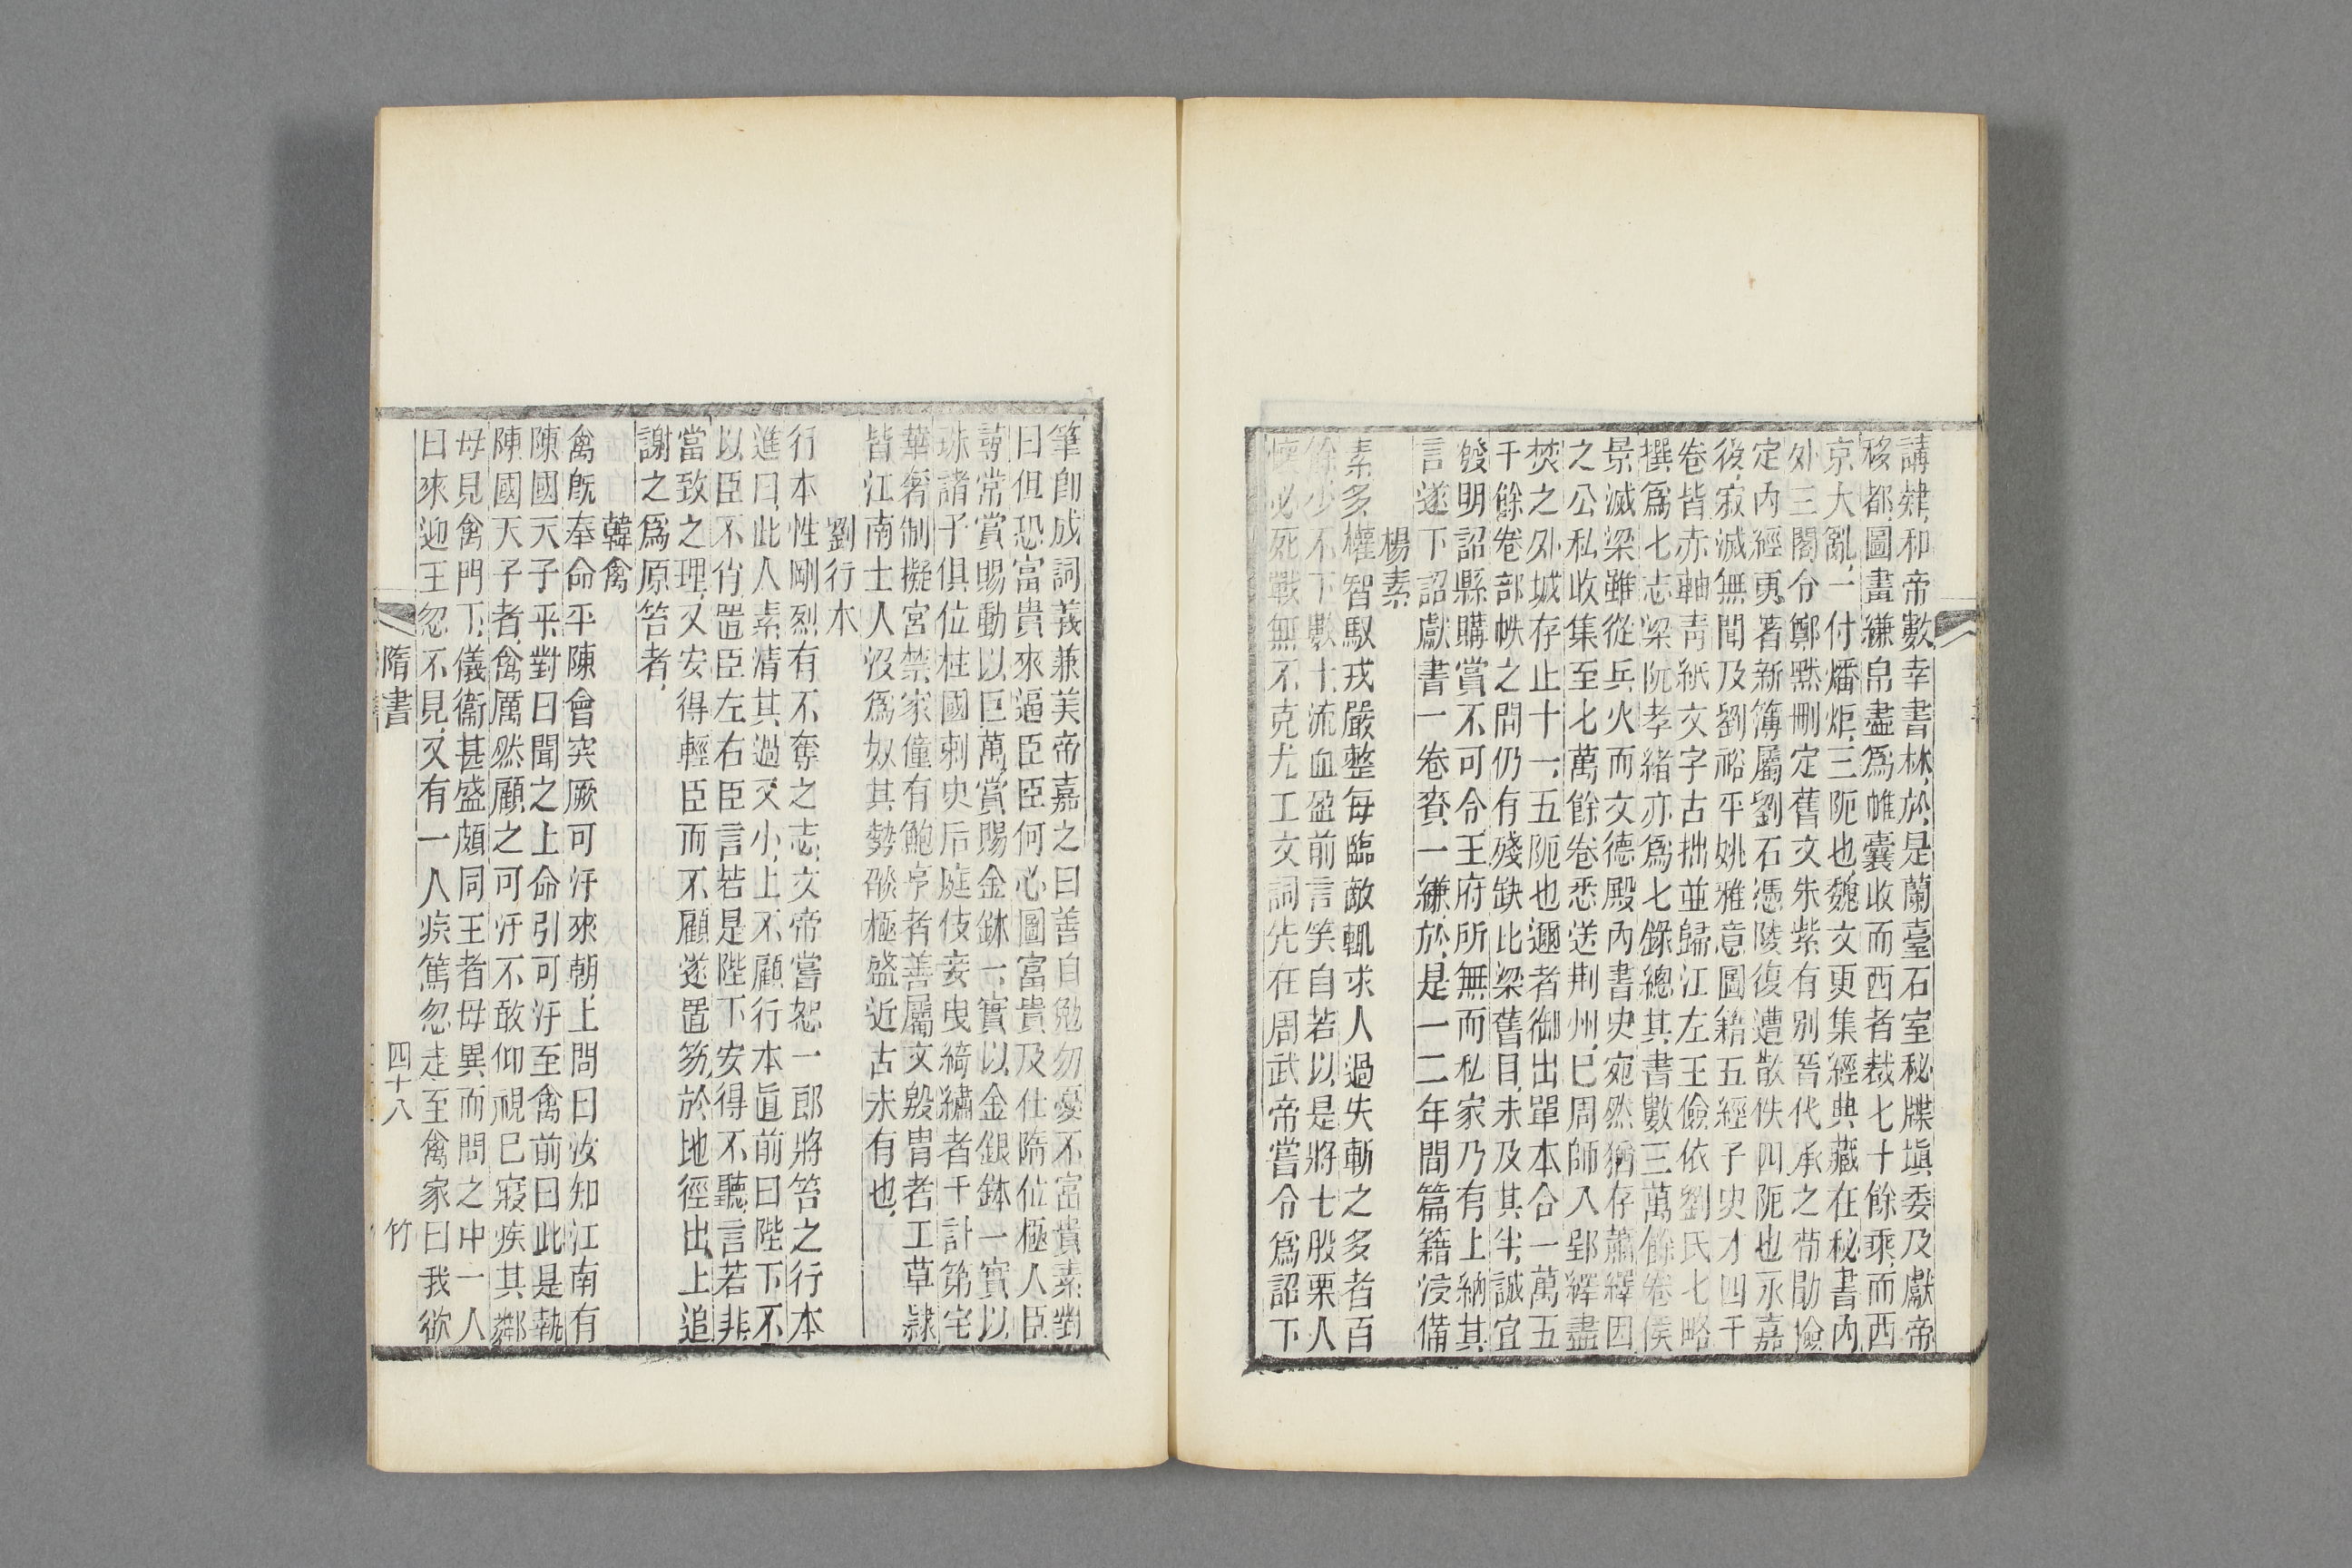 講肄和帝數幸書林於是蘭臺石室秘牒塡委乃獻帝
移都圖畫縑帛盡爲帷囊收而西者裁七十餘乘而西
京大亂一付燔炬三阨也魏文更集經典藏在秘書內
外三閣令鄭黙刪定舊文朱紫有別晉代承之荀勛撿
定內經更著新簿屬劉石憑陵復遭散佚四阨也永嘉
後寂滅無聞及劉裕平姚雅意圖籍五經子史才四千
卷皆赤軸靑紙文字古拙並歸江左王儉依劉氏七略
撰爲七志梁阮孝緒亦爲七錄總其書數三萬餘卷侯
景滅梁雖從兵火而文德殿內書史宛然猶存蕭繹因
之公私收集至七萬餘卷悉送荆州巳周師入郢繹盡
焚之外城存止十一五阨也邇者御出單本合一萬五
千餘卷部帙之間仍有殘缺比梁舊目未及其半誠宜
發明詔縣購賞不可令王府所無而私家乃有上納其
言遂下詔獻書一卷賚一縑於是一二年間篇籍浸備
楊素
素多權智馭戎嚴整每臨敵輒求人過失斬之多者百
餘少不下數十流血盈前言笑自若以是將士股栗人
懷必死戰無不克尤工文詞先在周武帝嘗令爲詔下
筆卽成詞義兼美帝嘉之曰善自勉勿憂不富貴素對
曰但恐富貴來逼臣臣何心圖富貴及仕隋位極人臣
尋常賞賜動以巨萬賞賜金鉢一實以金銀鉢一實以
珠諸子俱位柱國刺史后庭伎妾曳綺繡者千計第宅
華奢制擬宮禁家僮有鮑亨者善屬文殷胄者工草隷
皆江南士人沒爲奴其勢燄極盛近古未有也
劉行本
行本性剛烈有不奪之志文帝嘗怒一郎將笞之行本
進曰此人素淸其過又小上不顧行本直前曰陛下不
以臣不肖置臣左右臣言若是陛下安得不聽言若非
當致之理又安得輕臣而不顧遂置笏於地徑出上追
謝之爲原笞者
韓禽
禽旣奉命平陳會突厥可汗來朝上問曰汝知江南有
陳國天子乎對曰聞之上命引可汗至禽前曰此是執
陳國天子者禽厲然顧之可汗不敢仰視巳寢疾其鄰
母見禽門下儀衞甚盛頗同王者母異而問之中一人
曰來迎王忽不見又有一人疾篤忽走至禽家曰我欲
隋書 四十八 竹